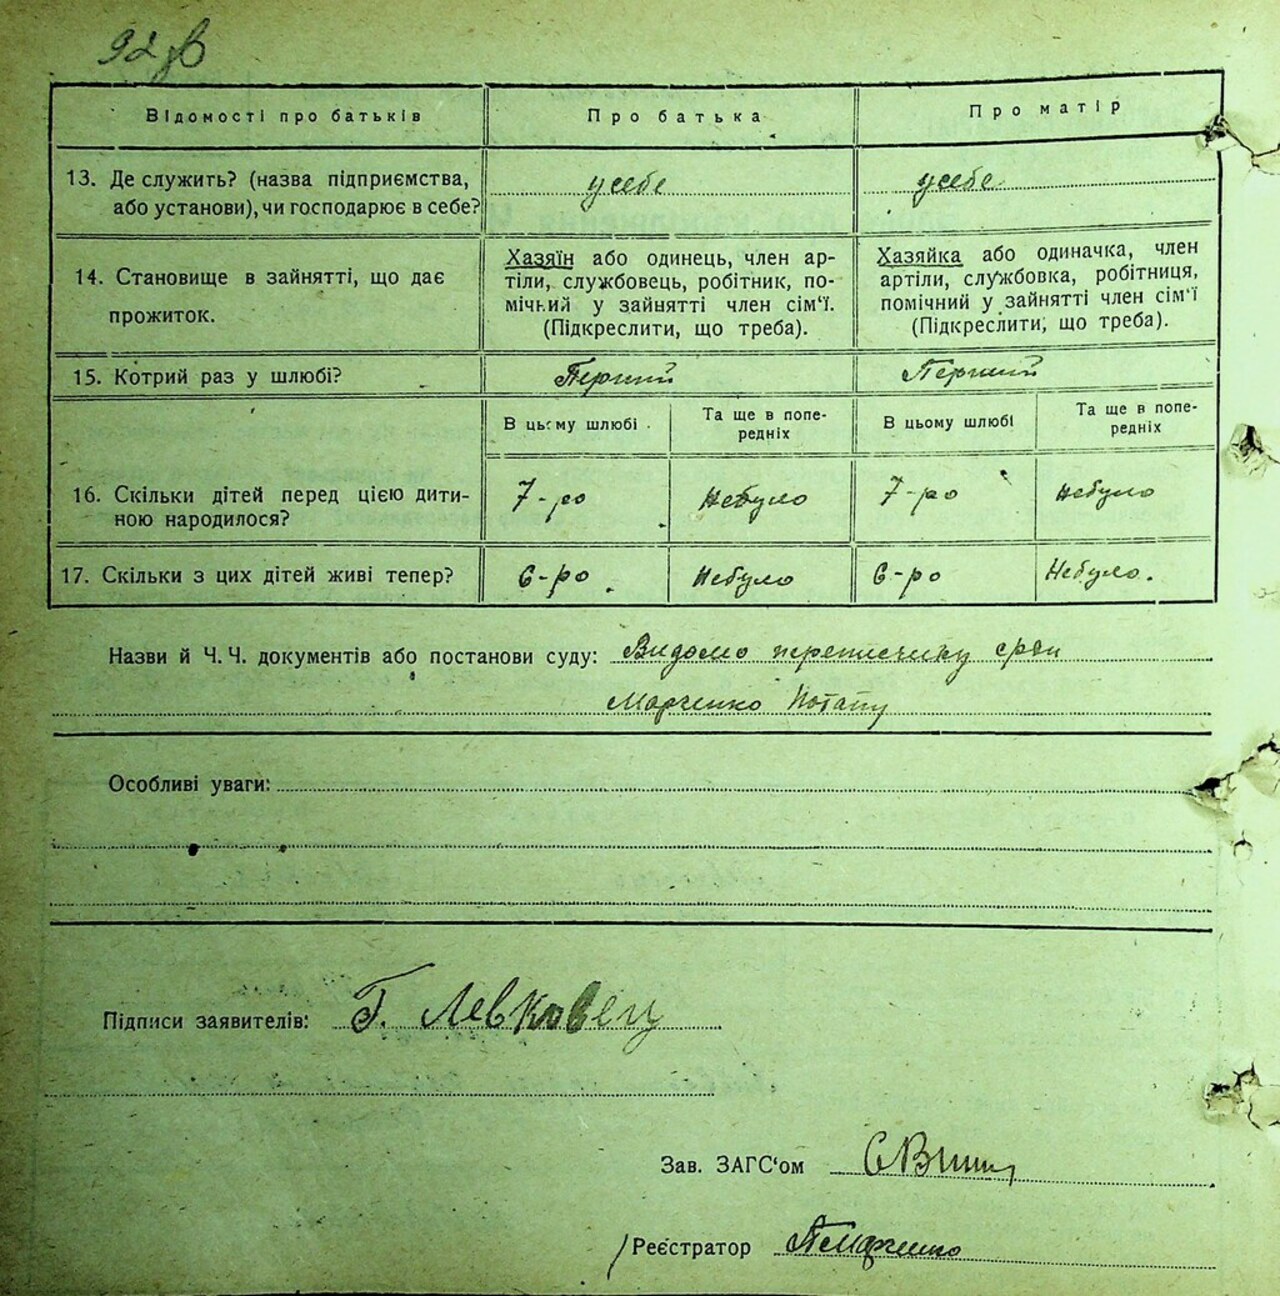 92 зв
Відомості про батьків
Про батька
Про матір
13. Де служить? (назва підприємства,
або установи), чи господарює в себе?
у себе
у себе
14. Становище в зайнятті, що дає
прожиток.
Хазяїн або одинець, член ар-
тіли, службовець, робітник, по-
мічний у зайнятті член сім'ї.
(Підкреслити, що треба).
Хазяйка або одиначка, член
артіли, службовка, робітниця,
помічний у зайнятті член сім'ї
(Підкреслити, що треба).
15. Котрий раз у шлюбі?
Перший
Перший
В цьому шлюбі
Та ще в попе-
редніх
В цьому шлюбі
Та ще в попе-
редніх
16. Скільки дітей перед цією дити-
ною народилося?
7-ро
Небуло
7-ро
Небуло
17. Скільки з цих дітей живі тепер?
6-ро
Небуло
6-ро
Небуло.
Назви й Ч. Ч. документів або постанови суду: Видомо
Марченко Потапу
Особливі уваги:
Підписи заявителів: Г. Левковец
Зав. ЗАГС'ом
Реєстратор ПМарченко